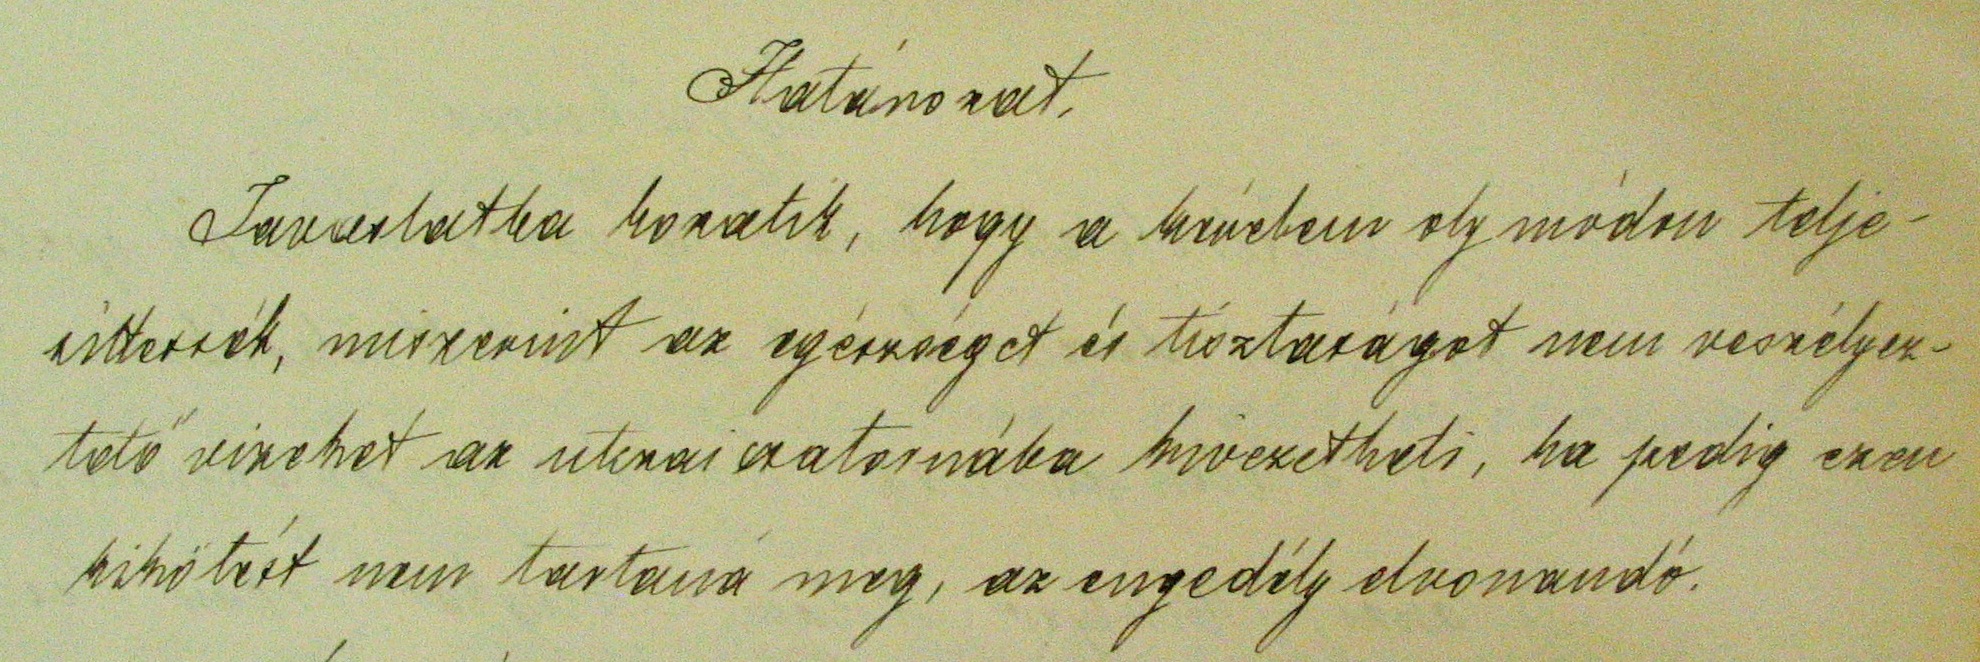 Határozat.
Javaslatba hozatik, hogy a kérelem oly módon telje-
síttessék, miszerint az egészséget és tisztaságot nem veszélyez-
tető vizeket az utczai csatornába kivezetheti, ha pedig ezen
kikötést nem tartaná meg, az engedély elvonandó.